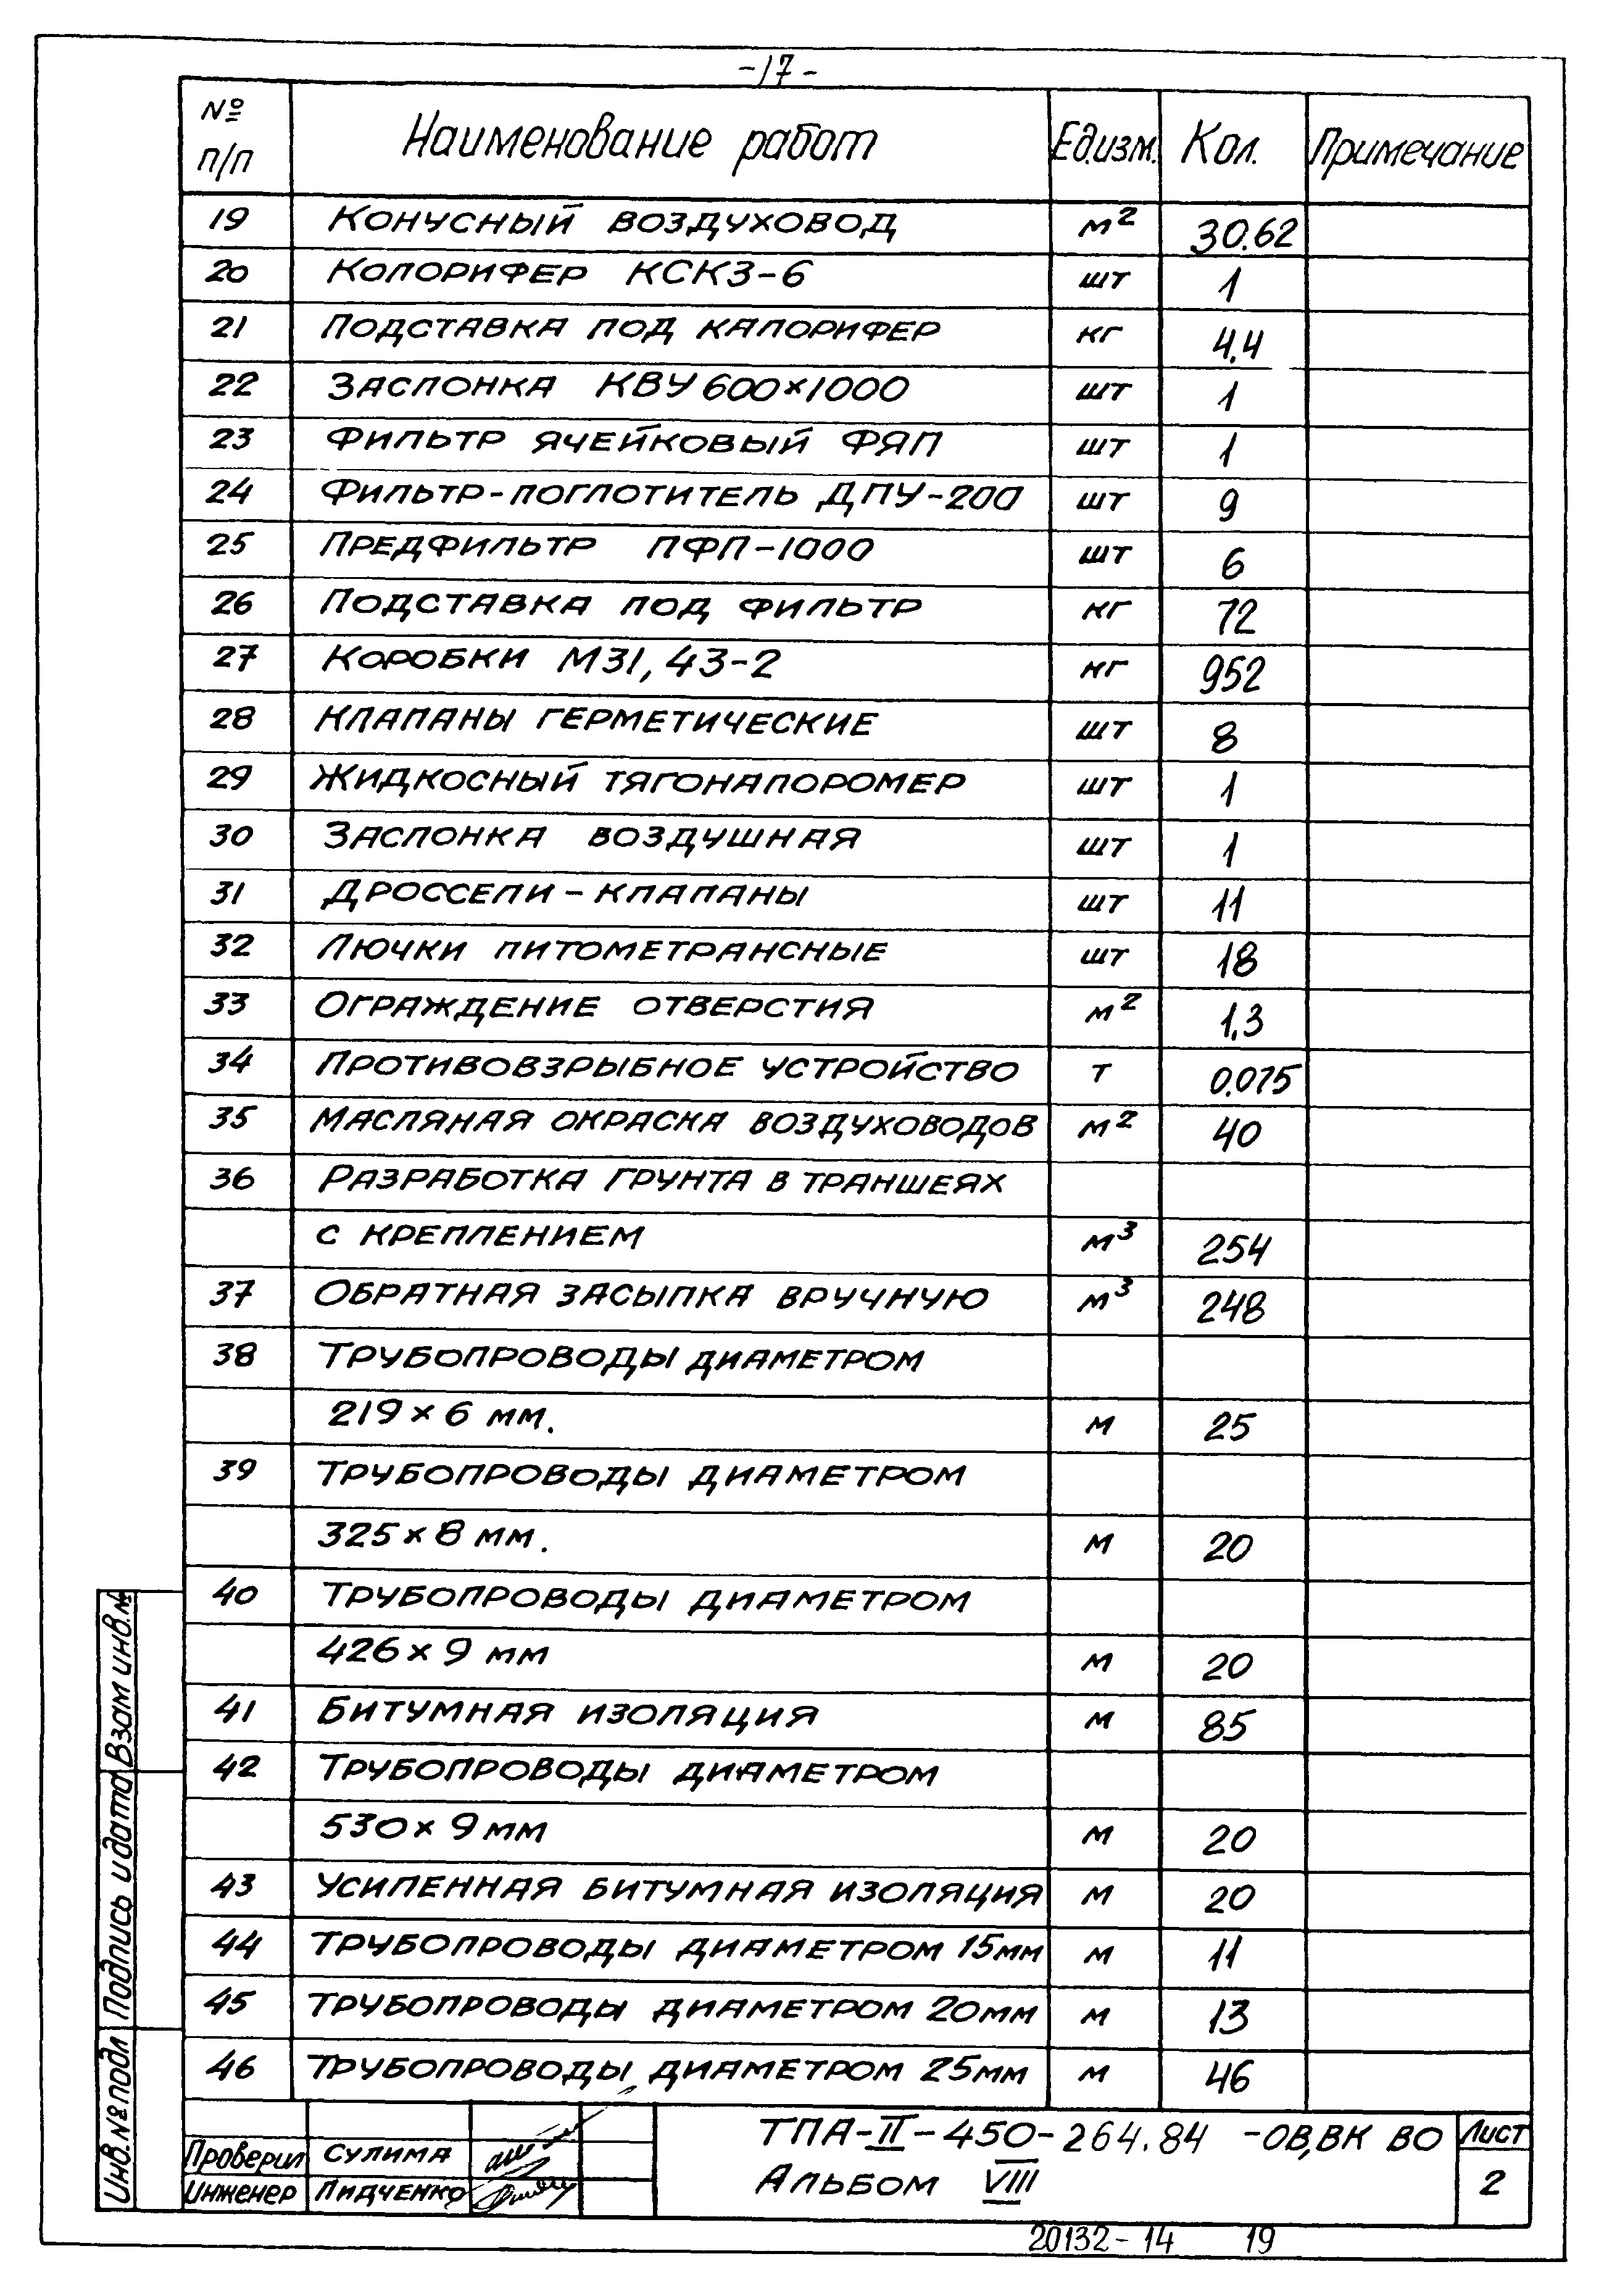 -17-
№ п/п Наименование работ Ед.изм. Кол. Примечание
19 Конусный воздуховод м² 30.62
20 Колорифер КСК3-6 шт 1
21 Подставка под калорифер кг 4.4
22 Заслонка КВУ 600×1000 шт 1
23 Фильтр ячейковый ФЯП шт 1
24 Фильтр-поглотитель ДПУ-200 шт 9
25 Предфильтр ПФП-1000 шт 6
26 Подставка под фильтр кг 72
27 Коробки М31, 43-2 кг 952
28 Клапаны герметические шт 8
29 Жидкосный тягонапоромер шт 1
30 Заслонка воздушная шт 1
31 Дроссели-клапаны шт 11
32 Лючки питометрансные шт 18
33 Ограждение отверстия м² 1.3
34 Противовзрыбное устройство т 0.075
35 Масляная окраска воздуховодов м² 40
36 Разработка грунта в траншеях
с креплением м³ 254
37 Обратная засыпка вручную м³ 248
38 Трубопроводы диаметром
219×6 мм. м 25
39 Трубопроводы диаметром
325×8 мм. м 20
40 Трубопроводы диаметром
426×9 мм м 20
41 Битумная изоляция м 85
42 Трубопроводы диаметром
530×9 мм м 20
43 Усиленная битумная изоляция м 20
44 Трубопроводы диаметром 15мм м 11
45 Трубопроводы диаметром 20мм м 13
46 Трубопроводы диаметром 25мм м 46
Инв.№ подл Подпись и дата Взам инв.№
Проверил Сулима
Инженер Пидченко
ТПА-II-450-264.84 -ОВ,ВК ВО
Альбом VIII
Лист
2
20132-14 19